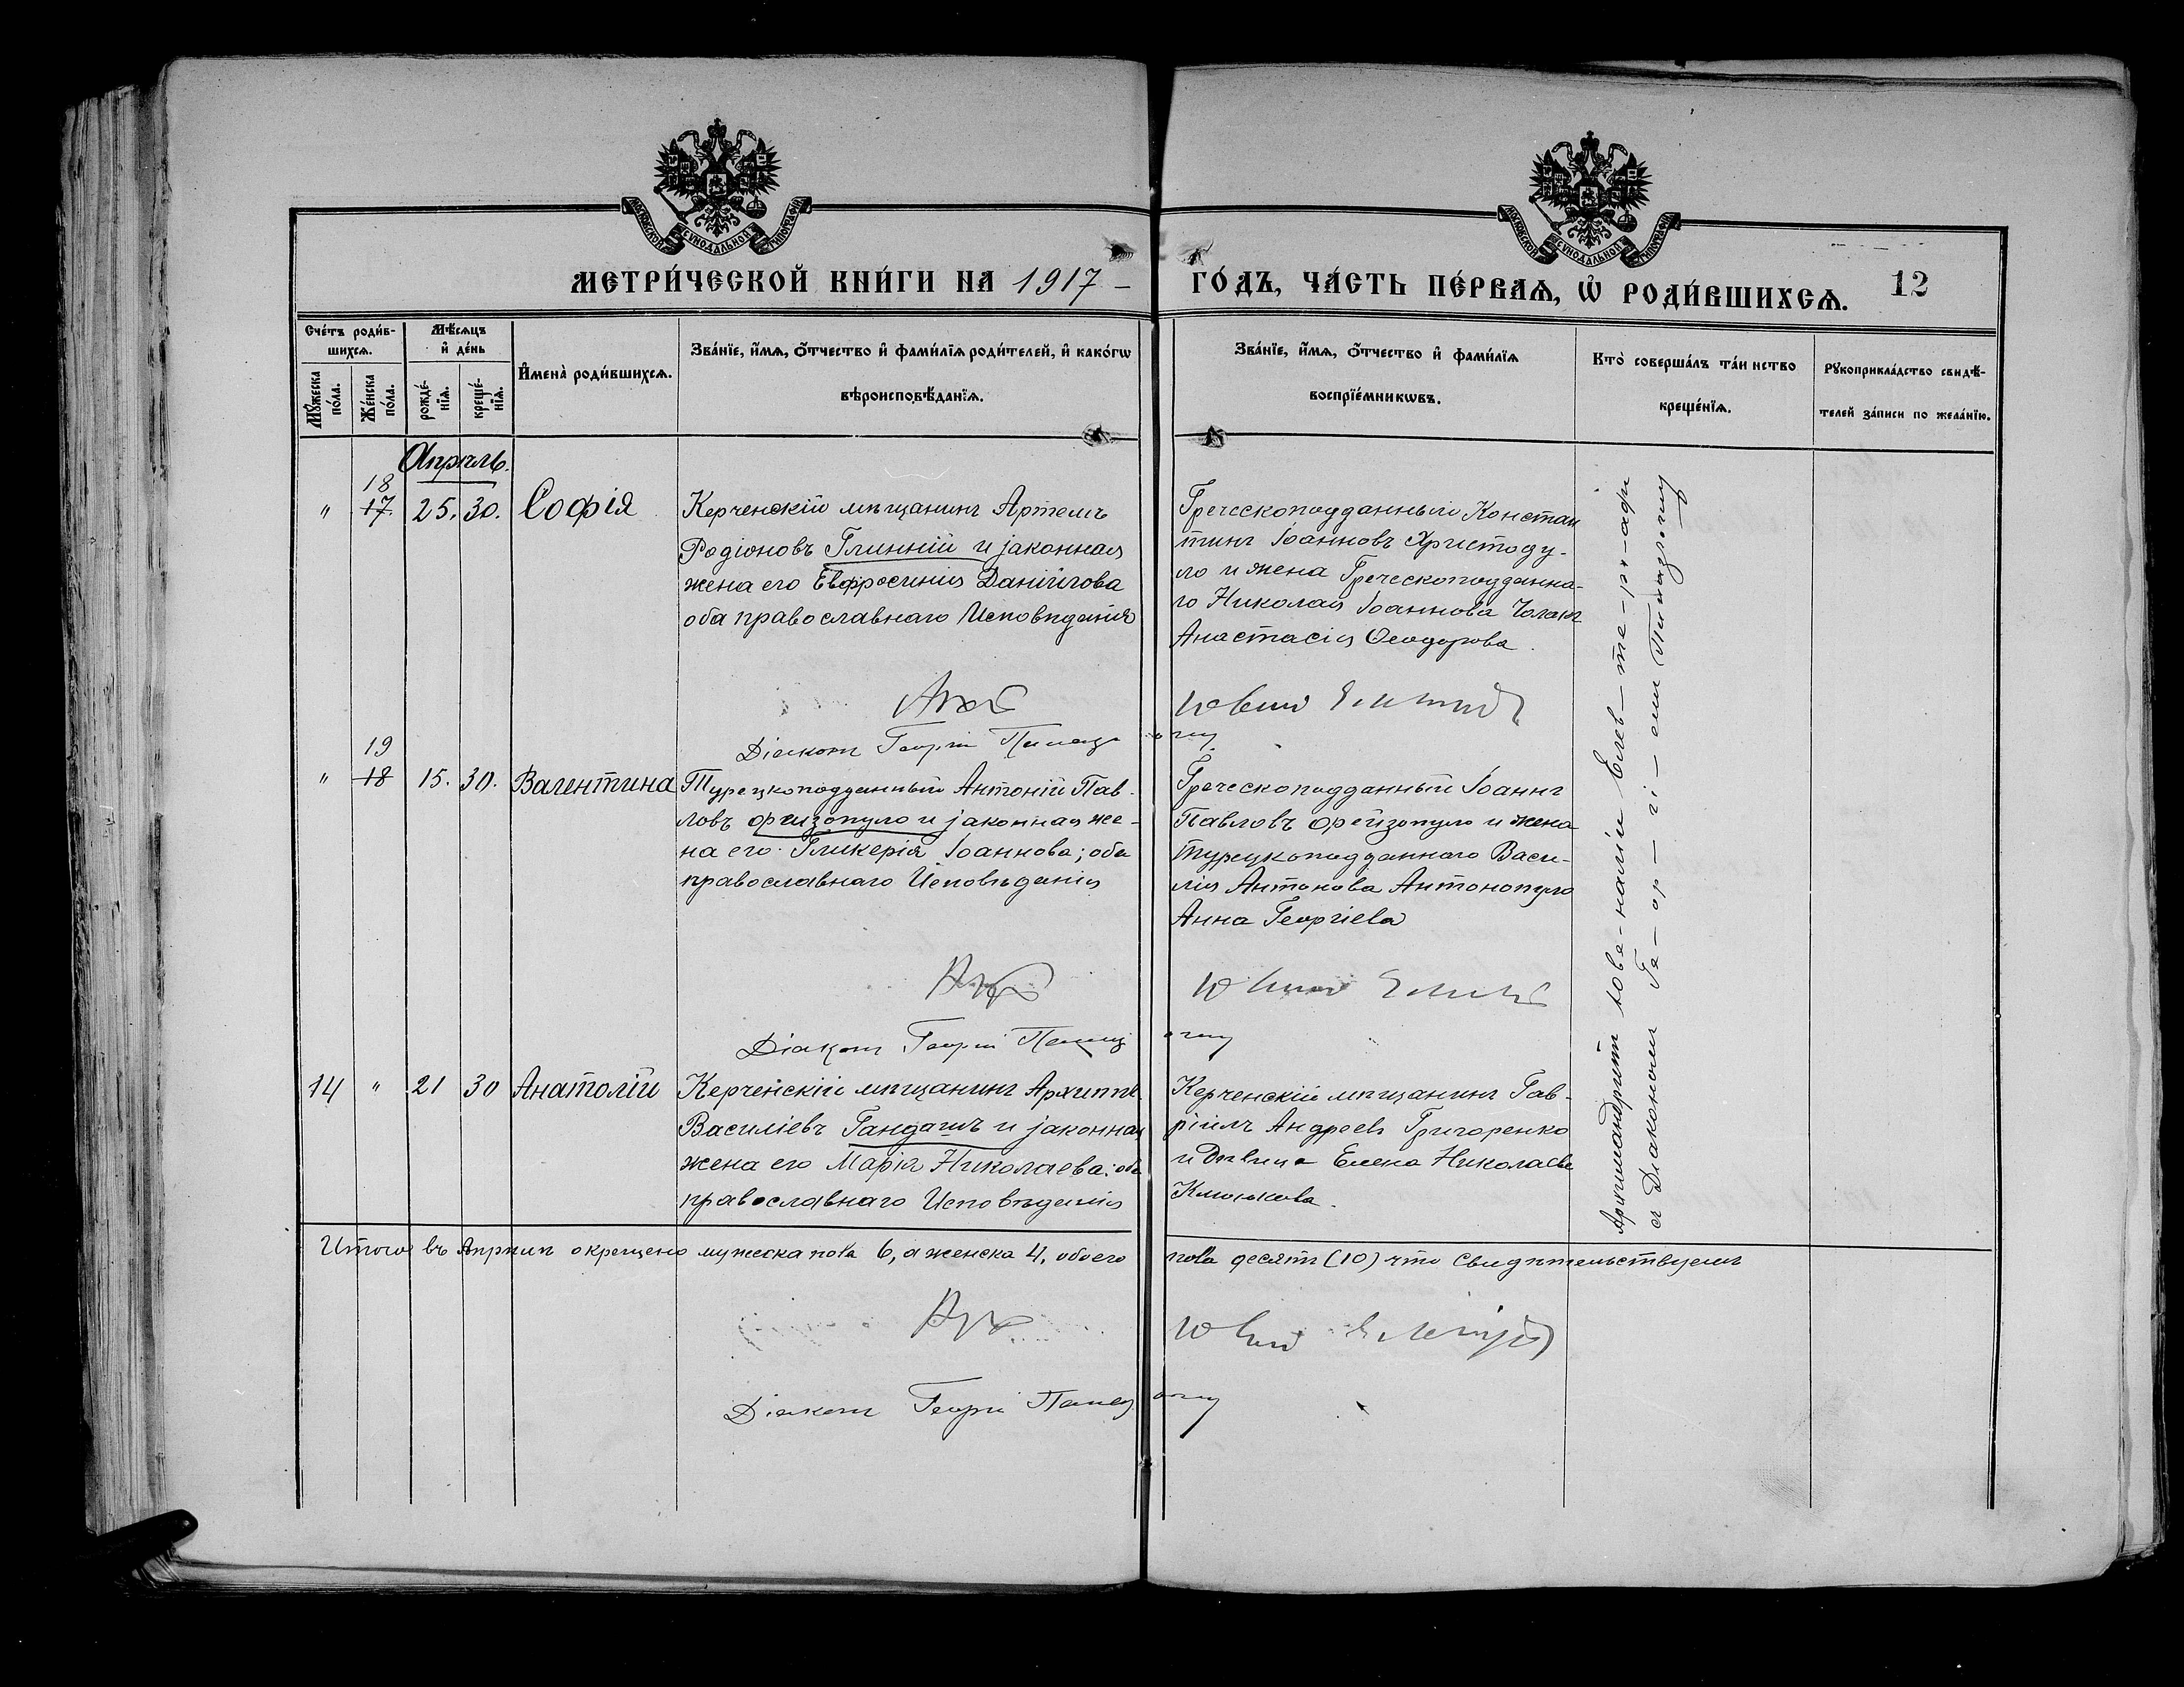 МОСКОВСКОЙ СѴНОДАЛЬНОЙ ТИПОГРАФІИ
МОСКОВСКОЙ СѴНОДАЛЬНОЙ ТИПОГРАФІИ
МЕТРИ́ЧЕСКОЙ КНИ́ГИ НА 1917 – ГО́ДЪ, ЧА́СТЬ ПЕ́РВАѦ, Ѡ҆ РОДИ́ВШИХСѦ. 12
Сче́тъ роди́вшихсѧ.
Мѹ́жеска по́ла.
Же́нска по́ла.
Мѣ́сѧцъ и҆ де́нь
рожде́нїѧ.
креще́нїѧ.
И҆мена̀ роди́вшихсѧ.
Зва́нїе, и҆́мѧ, ѻ҆́тчество и҆ фами́лїѧ роди́телей, и҆ како́гѡ
вѣроисповѣ́данїѧ.
Зва́нїе, и҆́мѧ, ѻ҆́тчество и҆ фами́лїѧ
воспрїе́мникѡвъ.
Кто̀ соверша́лъ та́инство
креще́нїѧ.
Рꙋкоприкла́дство свидѣ́-
телей за́писи по жела́нїю.
Апрѣль.
18
" 17. 25. 30. Софія
Керченскій мѣщанинъ Артемъ
Родіоновъ Глинній и законная
жена его Евфросинія Даніилова
оба православнаго Исповѣданія
Греческоподданный Констан
тинъ Іоанновъ Христоду-
ло и жена Греческоподданна-
го Николая Іоаннова
Анастасія Ѳеодорова.
Діаконъ Георгій
19
" 18 15. 30. Валентина
Турецкоподданный Антоній Пав-
ловъ Орейзопуло и законная же-
на его Гликерія Іоаннова; оба
православнаго Исповѣданія
Греческоподданный Іоаннъ
Павловъ Орейзопуло и жена
турецкоподданнаго Васи-
лія Антонова Антонопуло
Анна Георгіева
Діаконъ Георгій
14 " 21 30 Анатолій
Керченскій мѣщанинъ Архиппъ
Василіевъ Гандашъ и законная
жена его Марія Николаева: оба
православнаго Исповѣданія
Керченскій мѣщанинъ Гав-
ріилъ Андреевъ Григоренко
и дѣвица Елена Николаева
Архимандритъ
съ Діакономъ Ге-ор-гі-емъ
Итого въ Апрѣлѣ окрещено мужеска пола 6, а женска 4, обоего пола десять (10) что свидѣтельствуемъ
Діаконъ Георгій